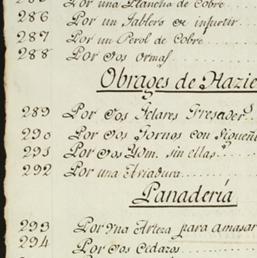 Por una Plancha de Cobre
286 Por un Tablero de infurtir
287 Por un Perol de Cobre
288 Por dos ormas
Obrages de Hazie
289 Por dos Telares
290 Por dos Tornos con
291 Por dos Ydm. sin ellas
292 Por una Aradura
Panadería
293 Por Una Arteza para amasar
294 Por dos Cedazos